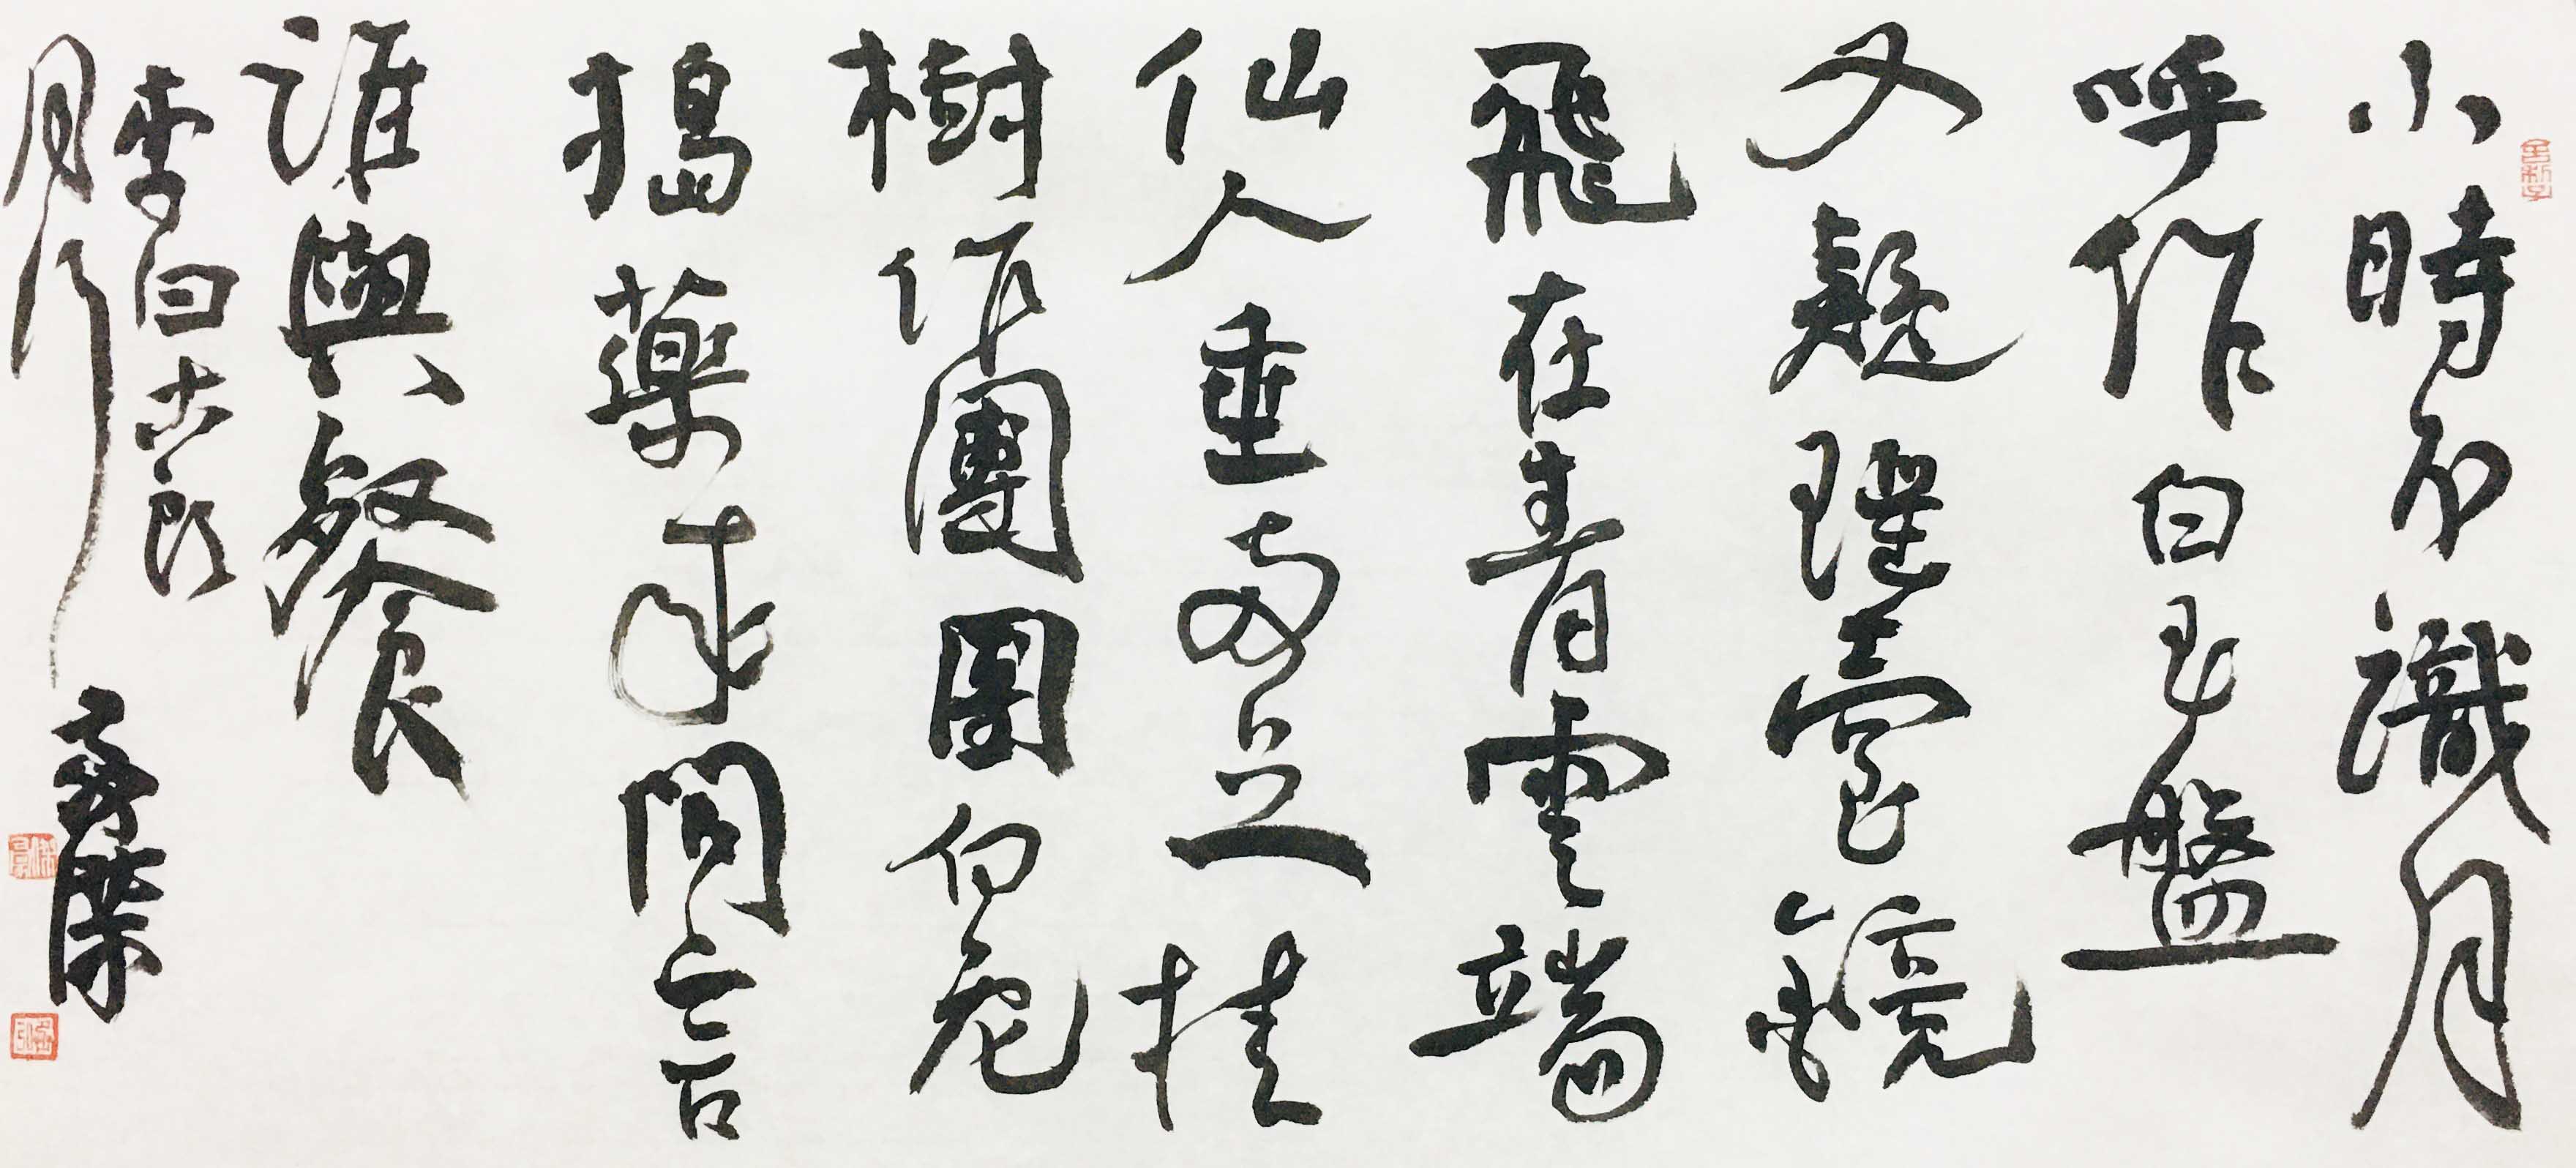 小時不識月
呼作白玉盤
又疑瑤臺鏡
飛在青雲端
仙人垂兩足桂
樹作團團白兔
搗藥成問言
誰與餐
李白古朗
月行